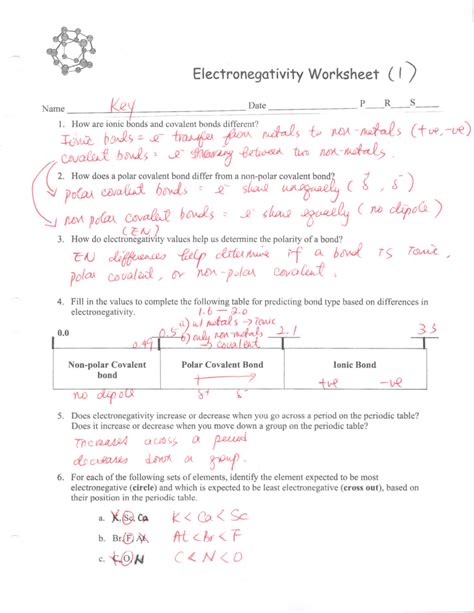 Electronegativity Worksheet (1)
Name Key Date P R S
1. How are ionic bonds and covalent bonds different?
Ionic bonds = e⁻ transfer from metals to non-metals (+ve, -ve)
covalent bonds = e⁻ sharing between two non-metals.
2. How does a polar covalent bond differ from a non-polar covalent bond?
polar covalent bonds = e⁻ share unequally (δ⁺, δ⁻)
non polar covalent bonds = e⁻ share equally (no dipole)
(EN)
3. How do electronegativity values help us determine the polarity of a bond?
EN differences help determine if a bond is Ionic,
polar covalent, or non-polar covalent.
4. Fill in the values to complete the following table for predicting bond type based on differences in
electronegativity.
1.6 - 2.0
a) w/ metals → Ionic
0.0 0.49 0.5 b) only non-metals 2.1 3.3
→ covalent
Non-polar Covalent bond Polar Covalent Bond Ionic Bond
no dipole δ+ δ- +ve -ve
5. Does electronegativity increase or decrease when you go across a period on the periodic table?
Does it increase or decrease when you move down a group on the periodic table?
Increases across a period
decreases down a group.
6. For each of the following sets of elements, identify the element expected to be most
electronegative (circle) and which is expected to be least electronegative (cross out), based on
their position in the periodic table.
a. K, Sc, Ca K < Ca < Sc
b. Br, F, At At < Br < F
c. C, O, N C < N < O